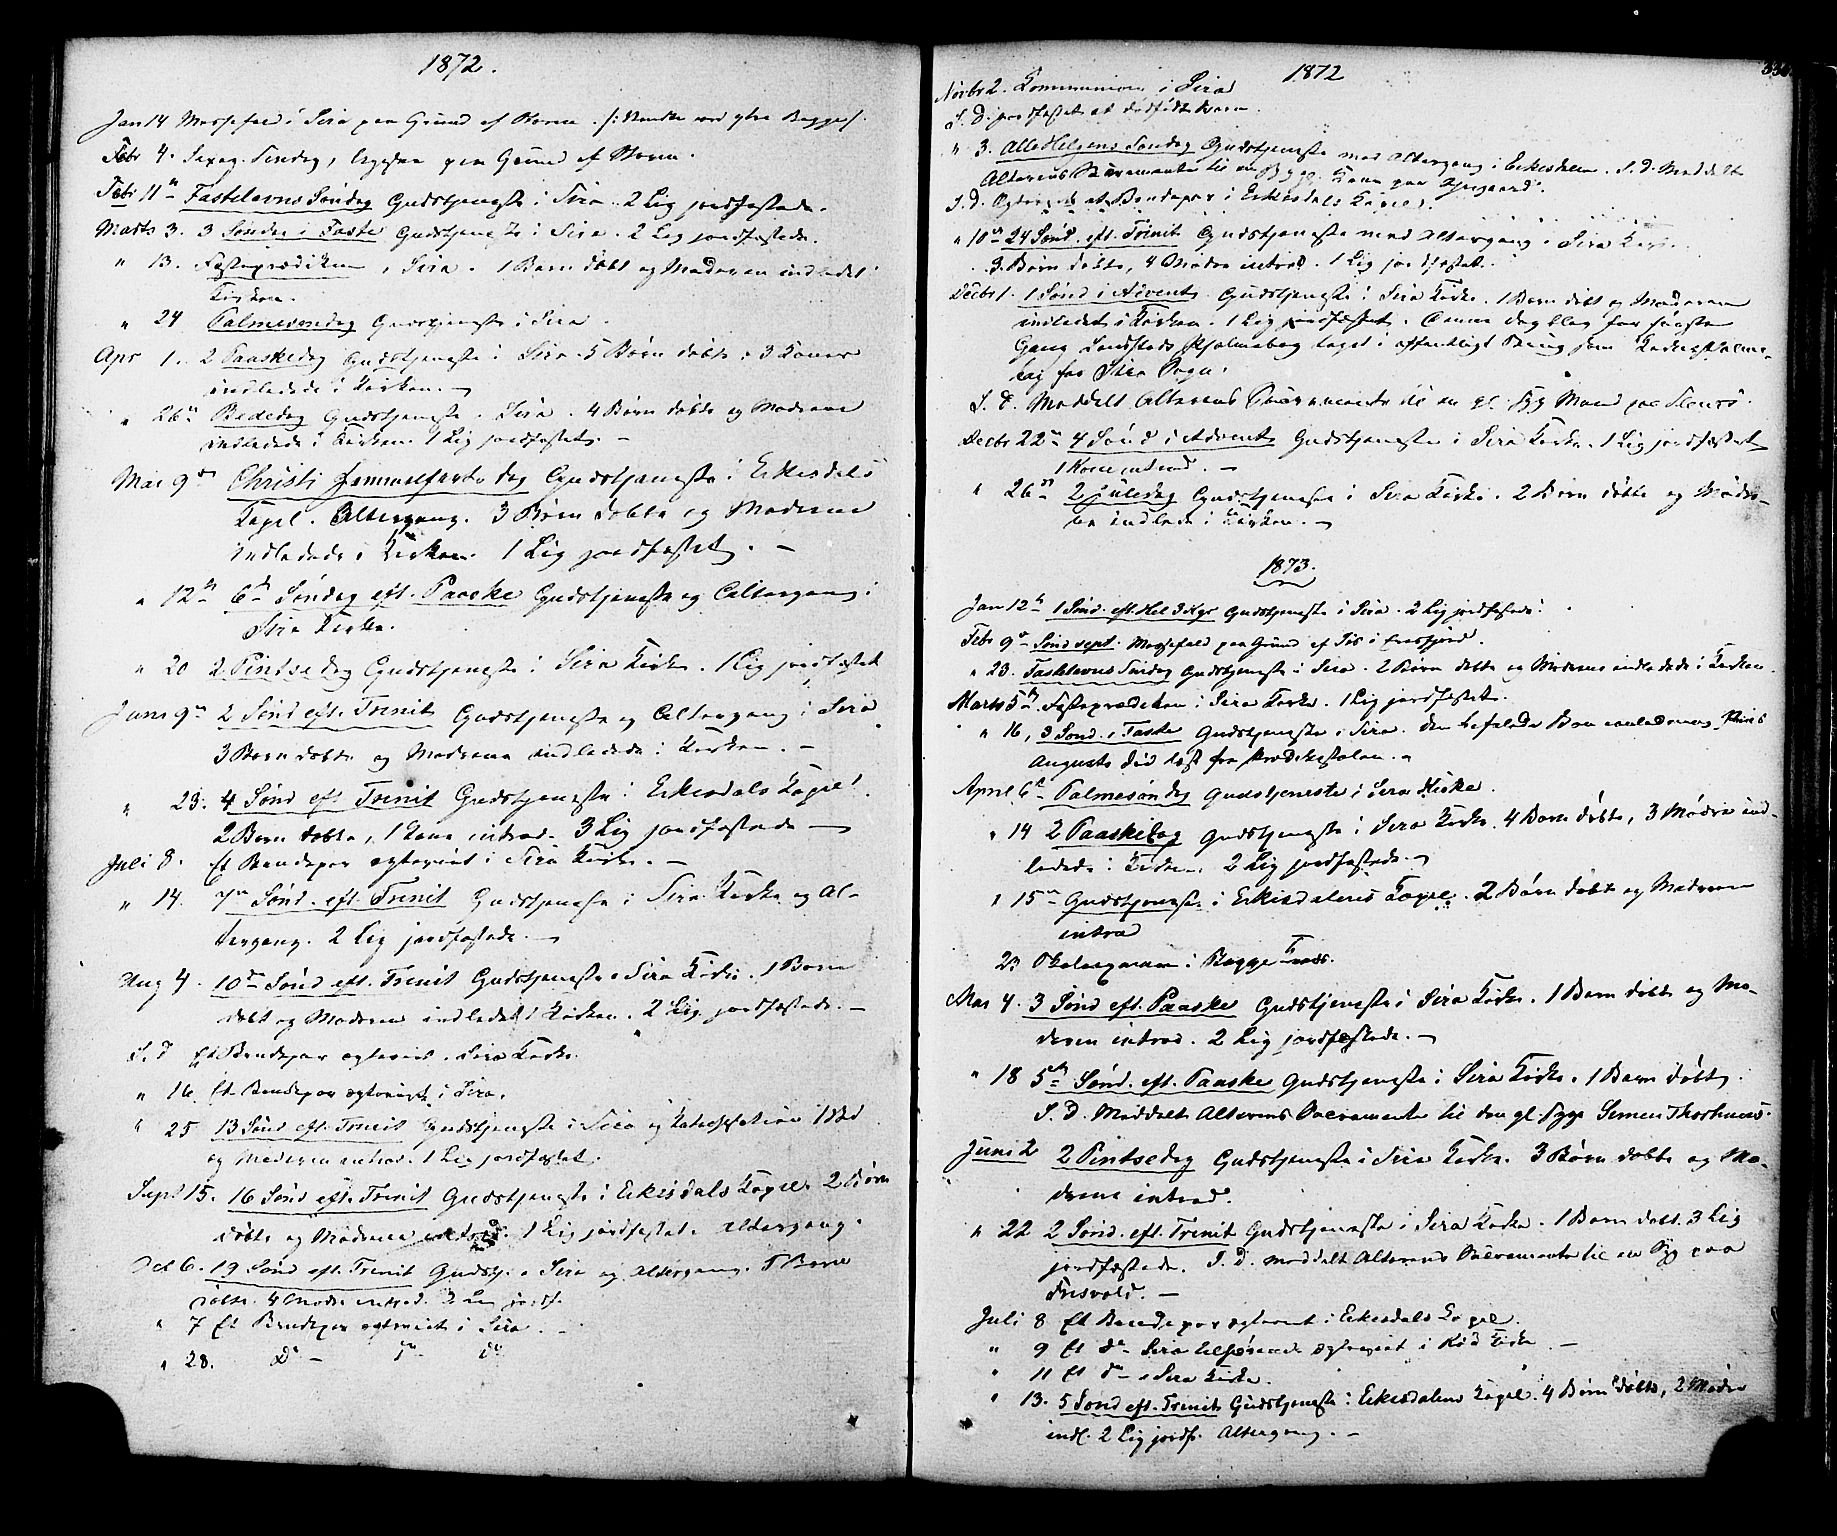 1872.
Jan 14 Messefald i Sira paa Grund af Storm.
Febr 4. Sexag. Søndag, ligesaa paa Grund af Storm.
Febr 11te Fastelavns Søndag Gudstjeneste i Sira. 2 Lig jordfæstede.
Marts 3. 3 Søndag i Faste Gudstjeneste i Sira. 2 Lig jordfæstede.
" 13. Fasteprædiken i Sira. 1 Barn døbt og Moderen indledet i
Kirken.
" 24 Palmesøndag Gudstjeneste i Sira.
Apr 1. 2 Paaskedag Gudstjeneste i Sira. 5 Børn døbte. 3 Koner
indledede i Kirken. –
" 26de Bededag Gudstjeneste i Sira. 4 Børn døbte og Mødrene
indledede i Kirken. 1 Lig jordfæstet. –
Mai 9de Christi Himmelfarts dag Gudstjeneste i Eikisdals
Capel. Altergang. 3 Børn døbte og Mødrene
indledede i Kirken. 1 Lig jordfæstet. –
" 12te 6te Søndag eft. Paaske Gudstjeneste og Altergang i
Sira Kirke.
" 20 2 Pintsedag Gudstjeneste i Sira Kirke. 1 Lig jordfæstet
Juni 9de 2 Sønd eft. Trinit Gudstjeneste og Altergang i Sira
3 Børn døbte og Mødrene indledede i Kirken. –
" 23. 4 Sønd eft. Trinit Gudstjeneste i Eikisdals Capel.
2 Børn døbte, 1 Kone introd. 3 Lig jordfæstede –
Juli 8. Et Brudepar ægteviet i Sira Kirke. –
" 14. 7de Sønd. eft. Trinit Gudstjeneste i Sira Kirke og Al-
tergang. 2 Lig jordfæstede. –
Aug 4. 10de Sønd eft. Trinit Gudstjeneste i Sira Kirke. 1 Barn
døbt og Moderen indledet i Kirken. 2 Lig jordfæstede. –
S. d Et Brudepar ægteviet i Sira Kirke.
" 16 Et Brudepar ægteviet i Sira.
" 25 13 Sønd eft. Trinit Gudstjeneste i Sira og Katechisation 1 Bd
og Moderen introd. 1 Lig jordfæstet.
Sept 15. 16 Sønd eft. Trinit Gudstjeneste i Eikisdals Capel. 2 Børn
døbte og Mødrene introd. 1 Lig jordfæstet. Altergang.
Oct 6. 19 Sønd eft. Trinit Gudstj. i Sira og Altergang. 5 Børn
døbte. 4 Mødre introd. 2 Lig jordf.
" 7 Et Brudepar ægteviet i Sira. –
" 28. Do – do do
1872
Novbr 2. Communion i Sira
S. D. jordfæstet et dødfødt Barn.
" 3. Alle Helgens Søndag Gudstjeneste med Altergang i Eikisdalen. S. D. Meddelt
Altarens Sacramente til en Syg Kone paa
S. D. Ægteviet et Brudepar i Eikisdals Capel.
" 10de 24 Sønd. eft. Trinit Gudstjeneste med Altergang i Sira Kirke.
3 Børn døbte, 4 Mødre introd. 1 Lig jordfæstet.
Decbr 1. 1 Sønd i Advent Gudstjeneste i Sira Kirke. 1 Barn døbt og Moderen
indledet i Kirken. 1 Lig jordfæstet. Denne dag blev for første
Gang Landstads Psalmebog taget i offentligt Brug som Kirkepsalme-
bog for Sira Sogn.
S. D. Meddelt Altarens Sacramente til en gl. syg Mand paa
Decbr 22de 4 Sønd i Advent Gudstjeneste i Sira Kirke. 1 Lig jordfæstet
1 Kone introd. –
" 26de 2 Juledag Gudstjeneste i Sira Kirke. 2 Børn døbte og Mødre-
ne indlede i Kirken. –
1873.
Jan 12te 1 Sønd. eft Hel 3 Kgr Gudstjeneste i Sira. 2 Lig jordfæstede.
Febr 9de Sønd sept. Messefald paa Grund af Iis i Eresfjord.
" 23. Fastelavns Søndag Gudstjeneste i Sira. 2 Børn døbte og Mødrene indledede i Kirken.
Marts 5te Fasteprædiken i Sira Kirke. 1 Lig jordfæstet.
" 16, 3 Sønd. i Faste Gudstjeneste i Sira. Den befalede Bøn
Augusts Død læst fra Prædikestolen. –
April 6te Palmesøndag Gudstjeneste i Sira Kirke.
" 14 2 Paaskedag Gudstjeneste i Sira Kirke. 4 Børn døbte, 3 Mødre ind-
ledede i Kirken. 2 Lig jordfæstede. –
" 15de Gudstjeneste i Eikisdalens Capel. 2 Børn døbte og Mødrene
introd
23 Skoleexamen i Bogge
Mai 4. 3 Sønd eft. Paaske Gudstjeneste i Sira Kirke. 1 Barn døbt og Mo-
deren introd. 2 Lig jordfæstede. –
" 18 5te Sønd. eft. Paaske Gudstjeneste i Sira Kirke. 1 Barn døbt.
S. D. Meddelt Altarens Sacramente til den gl. syge Simen
Juni 2 2 Pintsedag Gudstjeneste i Sira Kirke. 3 Børn døbte og Mø-
drene introd.
" 22 2 Sønd. eft. Trinit Gudstjeneste i Sira Kirke. 1 Barn døbt. 3 Lig
jordfæstede. S. D. meddelt Altarens Sacramente til en Syg paa
Frisvold. –
Juli 8 Et Brudepar ægteviet i Eikisdals Capel.
" 9 Et do Sira tilhørende ægteviet i Rød Kirke –
" 11 Et do i Sira Kirke.
" 13. 5 Sønd eft. Trinit Gudstjeneste i Eikisdalens Capel. 4 Børn døbte, 2 Mødre
indl. 2 Lig jordf. Altergang. –